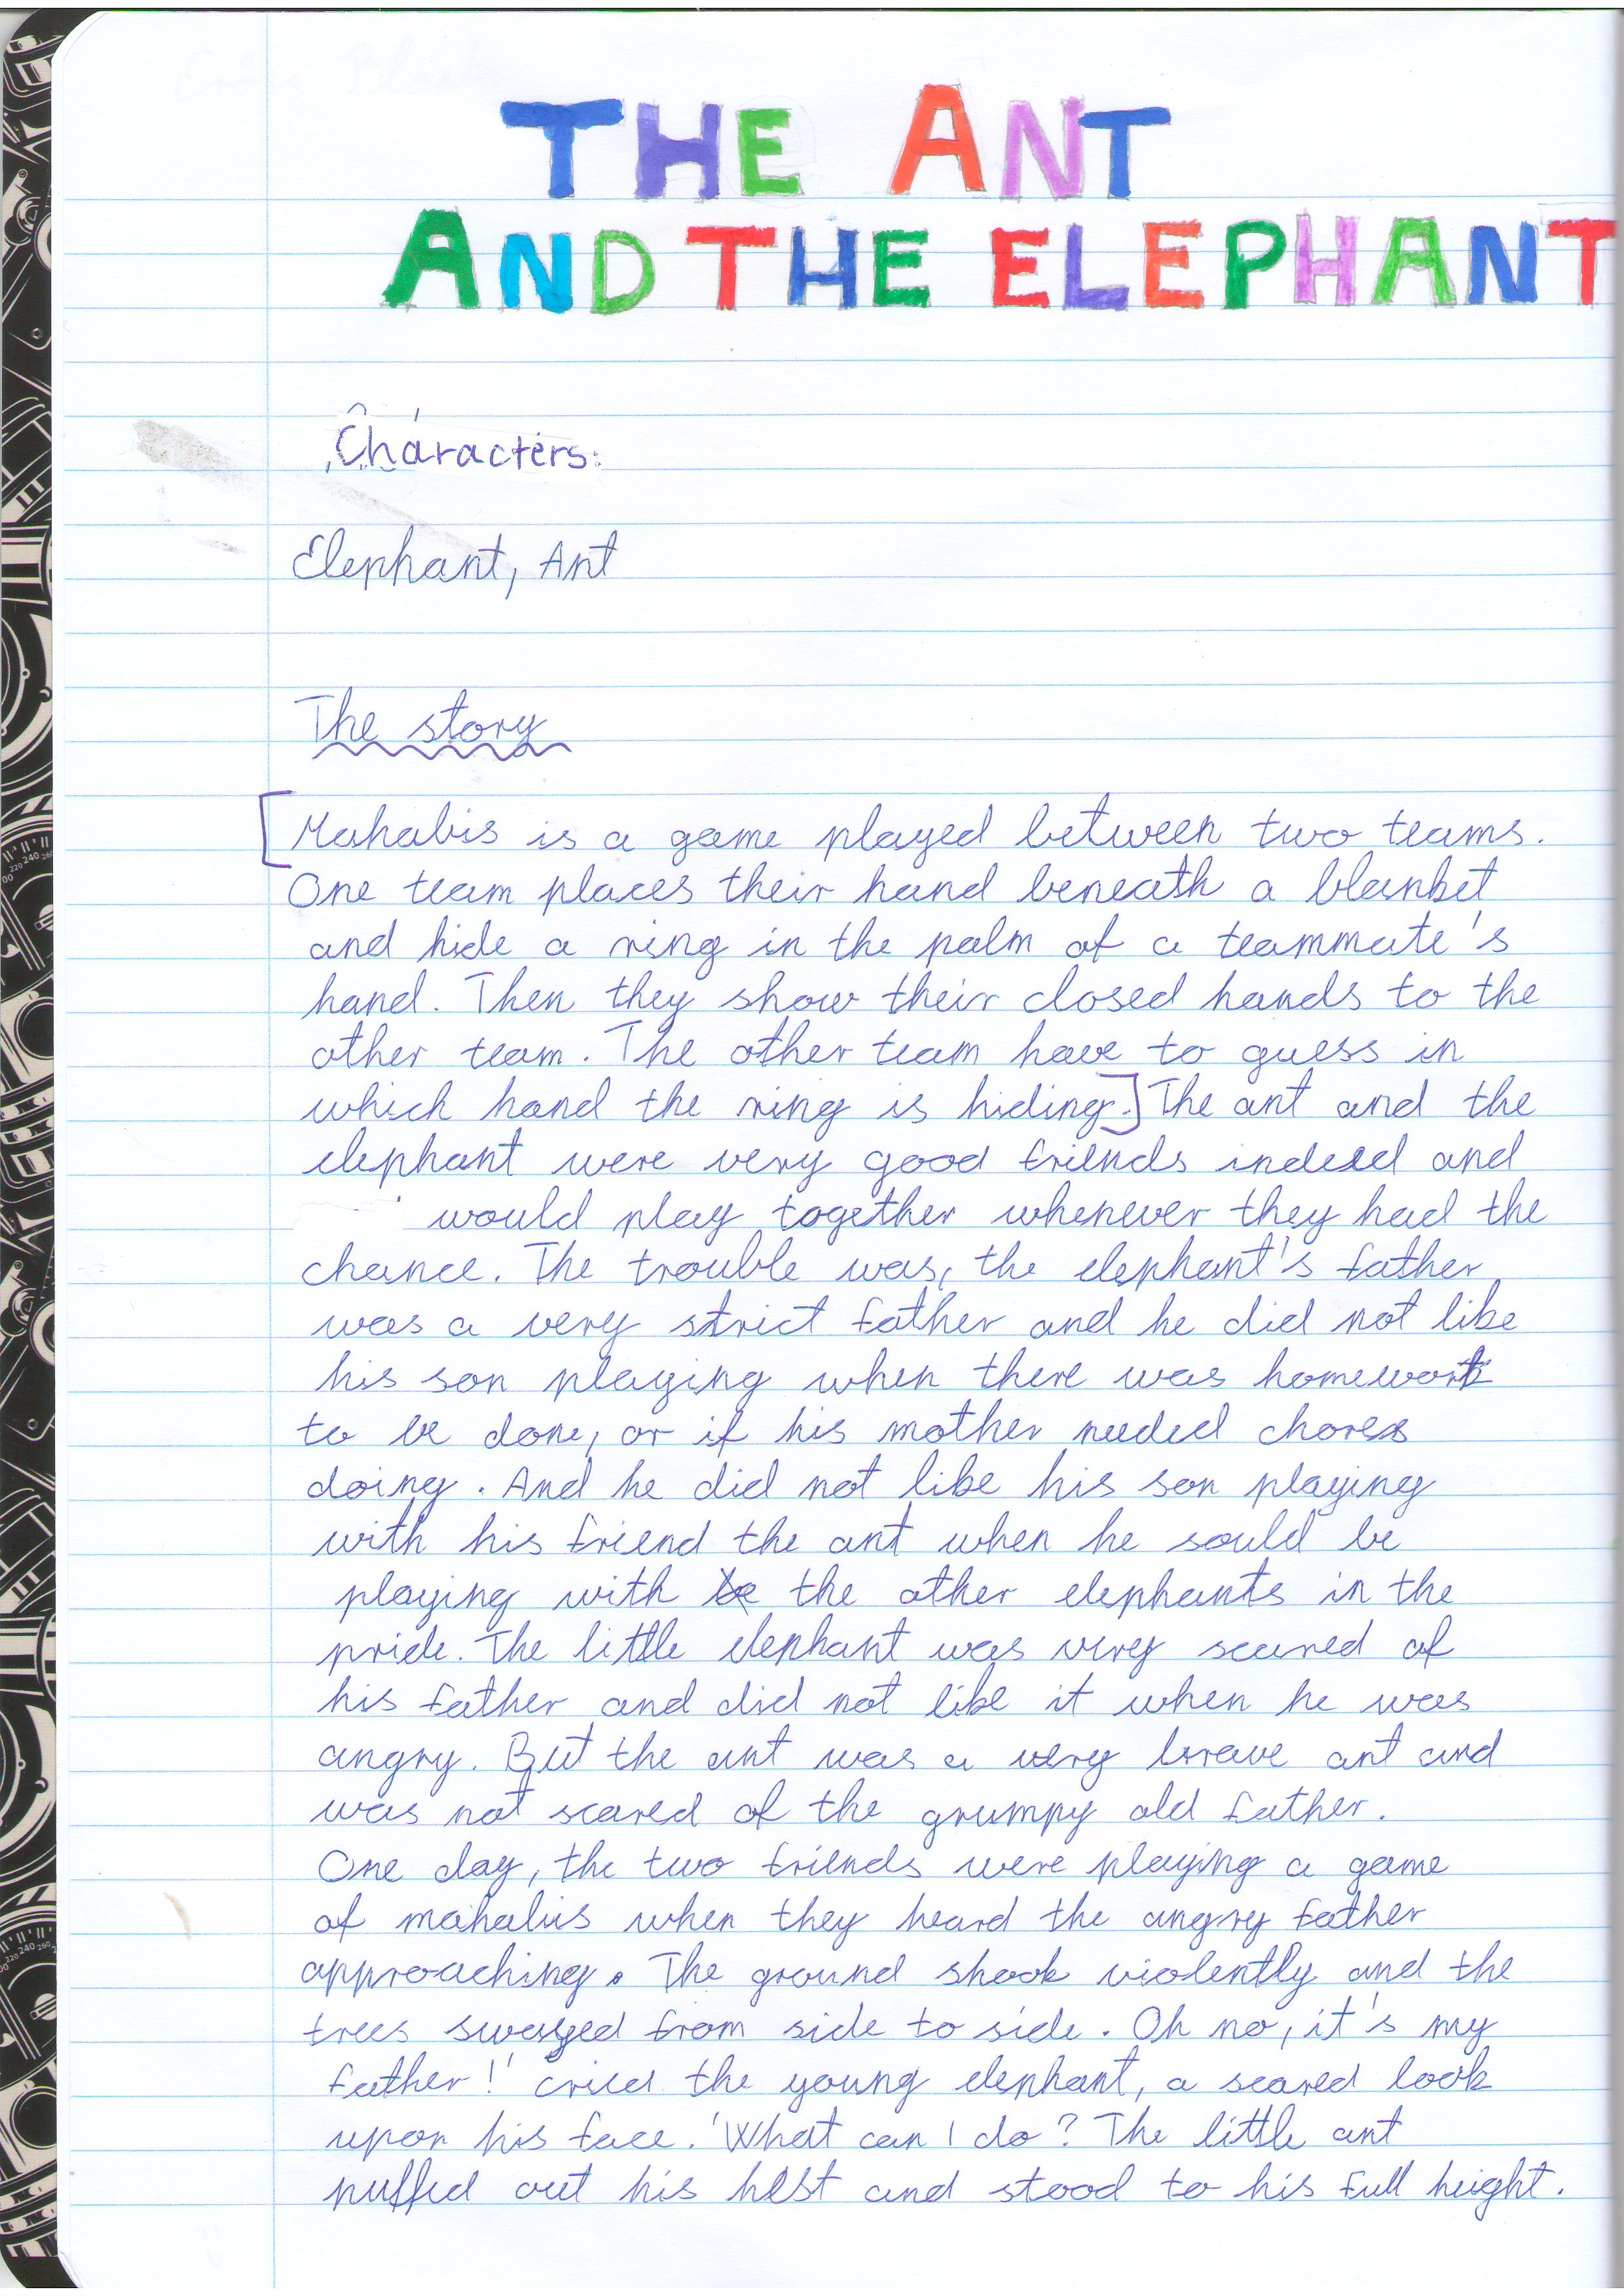 THE ANT
AND THE ELEPHANT
Characters:
Elephant, Ant
The story
[Mahabis is a game played between two teams.
One team places their hand beneath a blanket
and hide a ring in the palm of a teammate's
hand. Then they show their closed hands to the
other team. The other team have to guess in
which hand the ring is hiding.] The ant and the
elephant were very good friends indeed and
would play together whenever they had the
chance. The trouble was, the elephant's father
was a very strict father and he did not like
his son playing when there was homework
to be done, or if his mother needed chores
doing. And he did not like his son playing
with his friend the ant when he sould be
playing with the other elephants in the
pride. The little elephant was very scared of
his father and did not like it when he was
angry. But the ant was a very brave ant and
was not scared of the grumpy old father.
One day, the two friends were playing a game
of mahabis when they heard the angry father
approaching. The ground shook violently and the
trees swayed from side to side. Oh no, it's my
father!' cried the young elephant, a scared look
upon his face. 'What can I do? The little ant
puffed out his hest and stood to his full height.
240
220
240
260
220